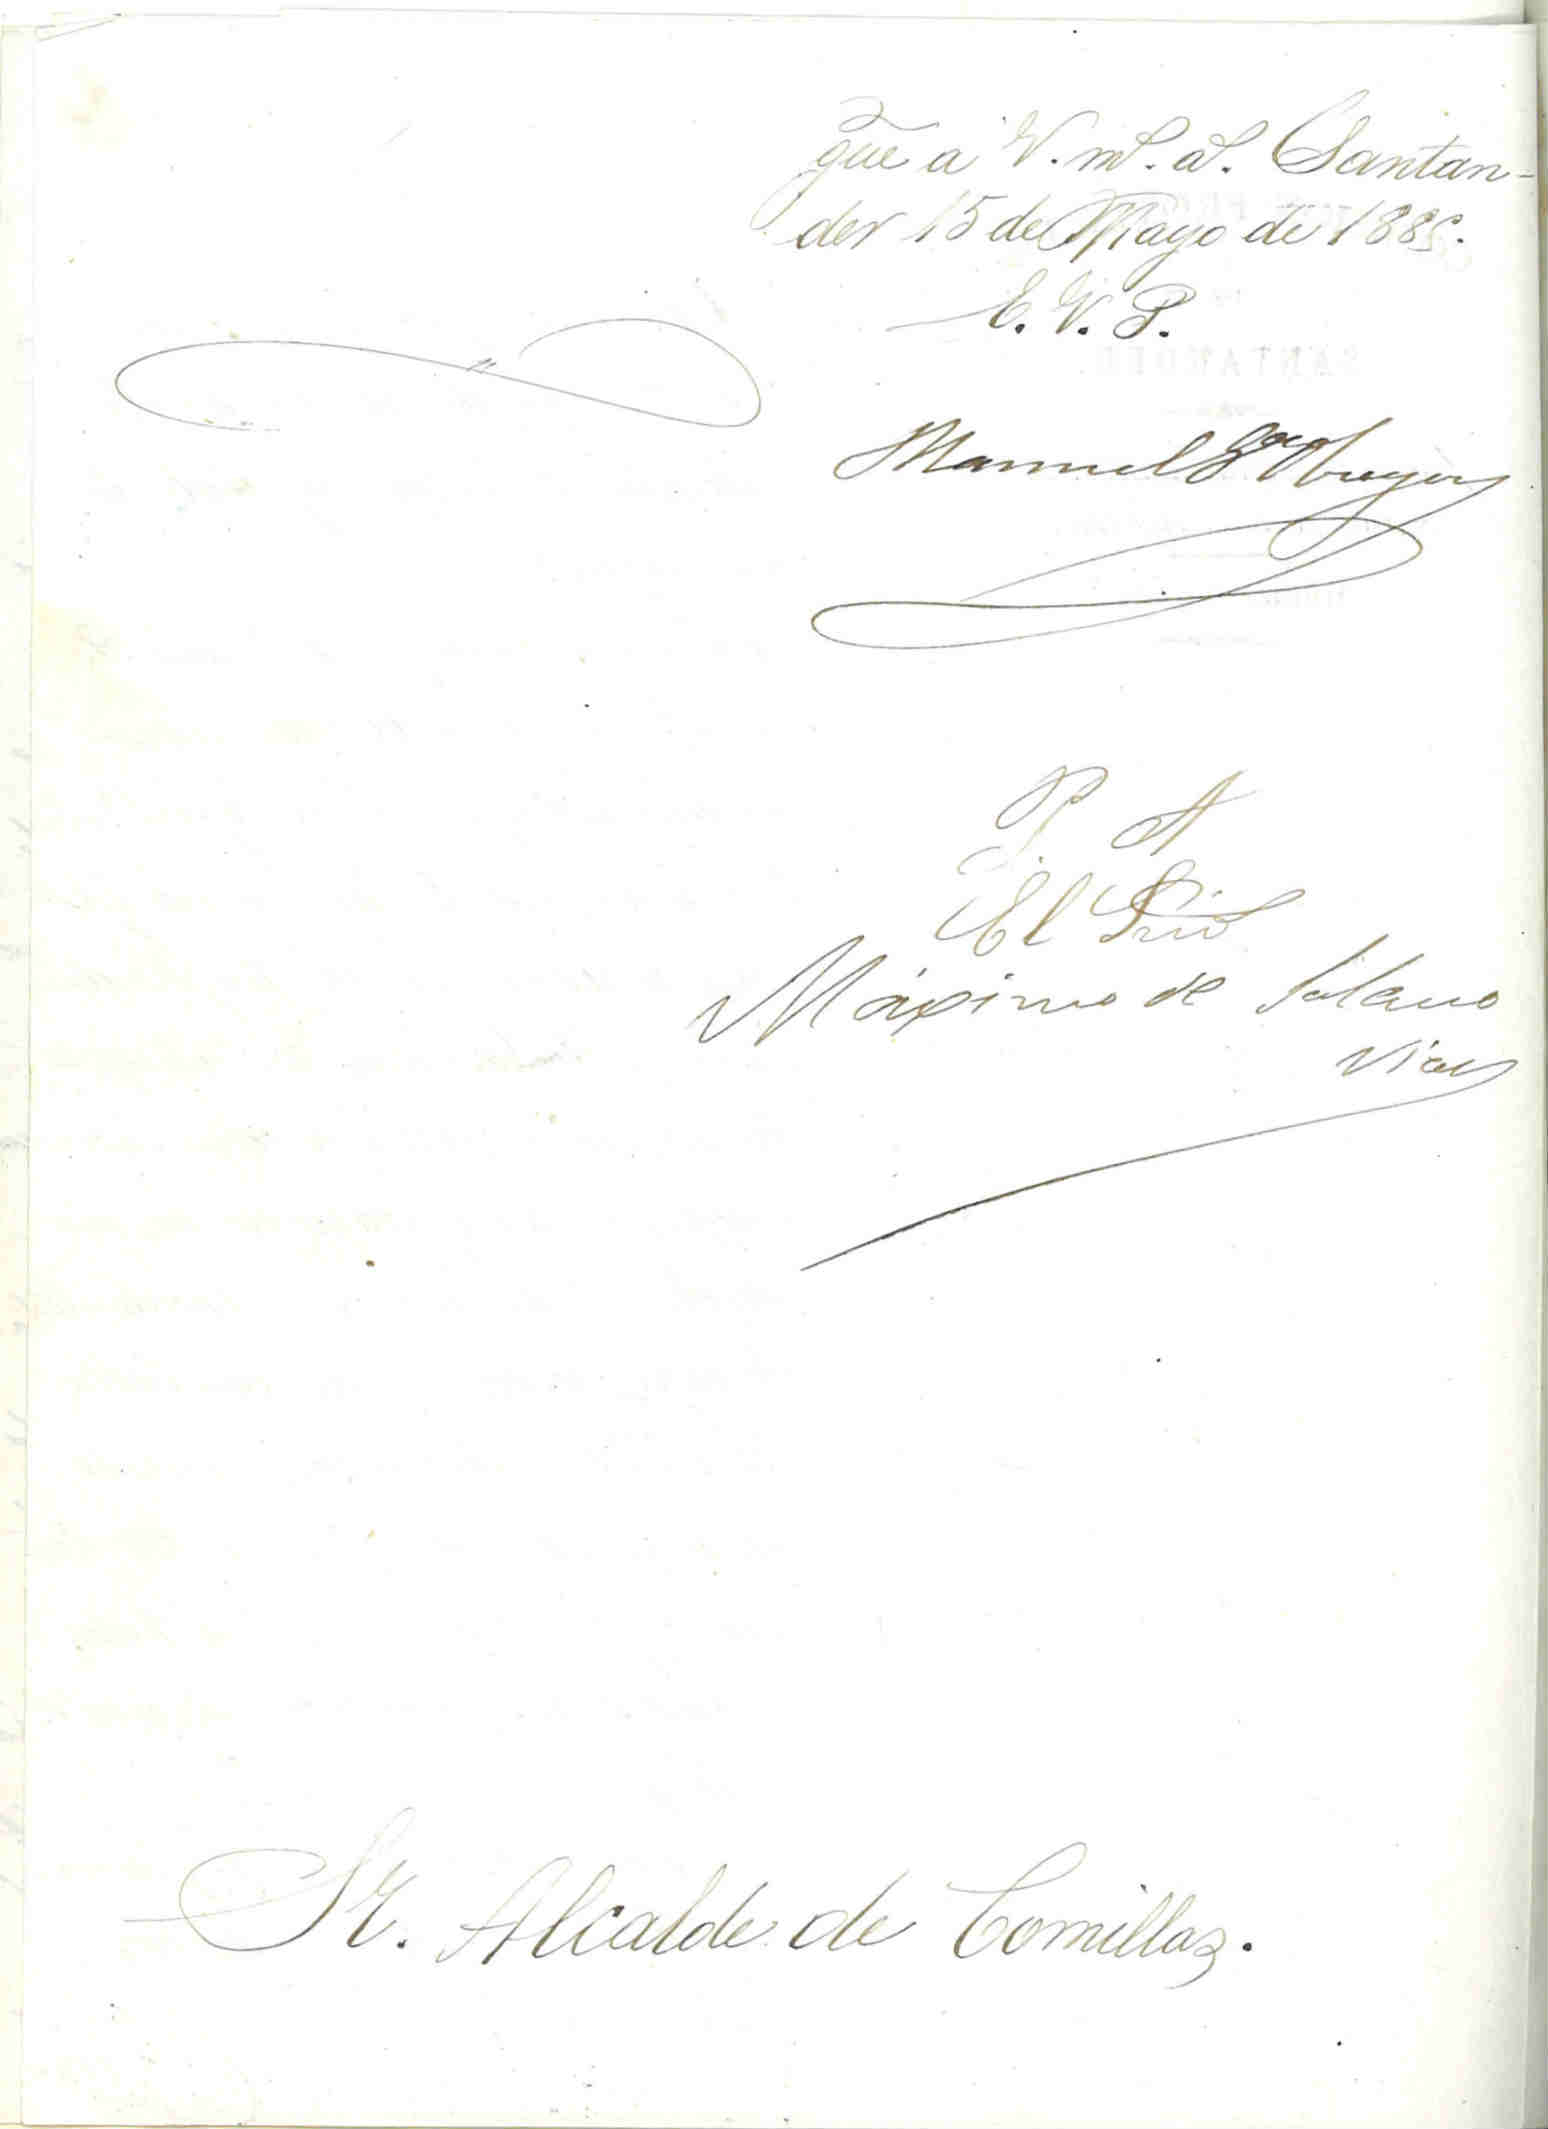 gue a V. m.s. a.s. Santan-
der 15 de Mayo de 188
E. V. P.
Manuel
P A
El Srio
Máximo de Solano
Vial
Sr. Alcalde de Comillas.